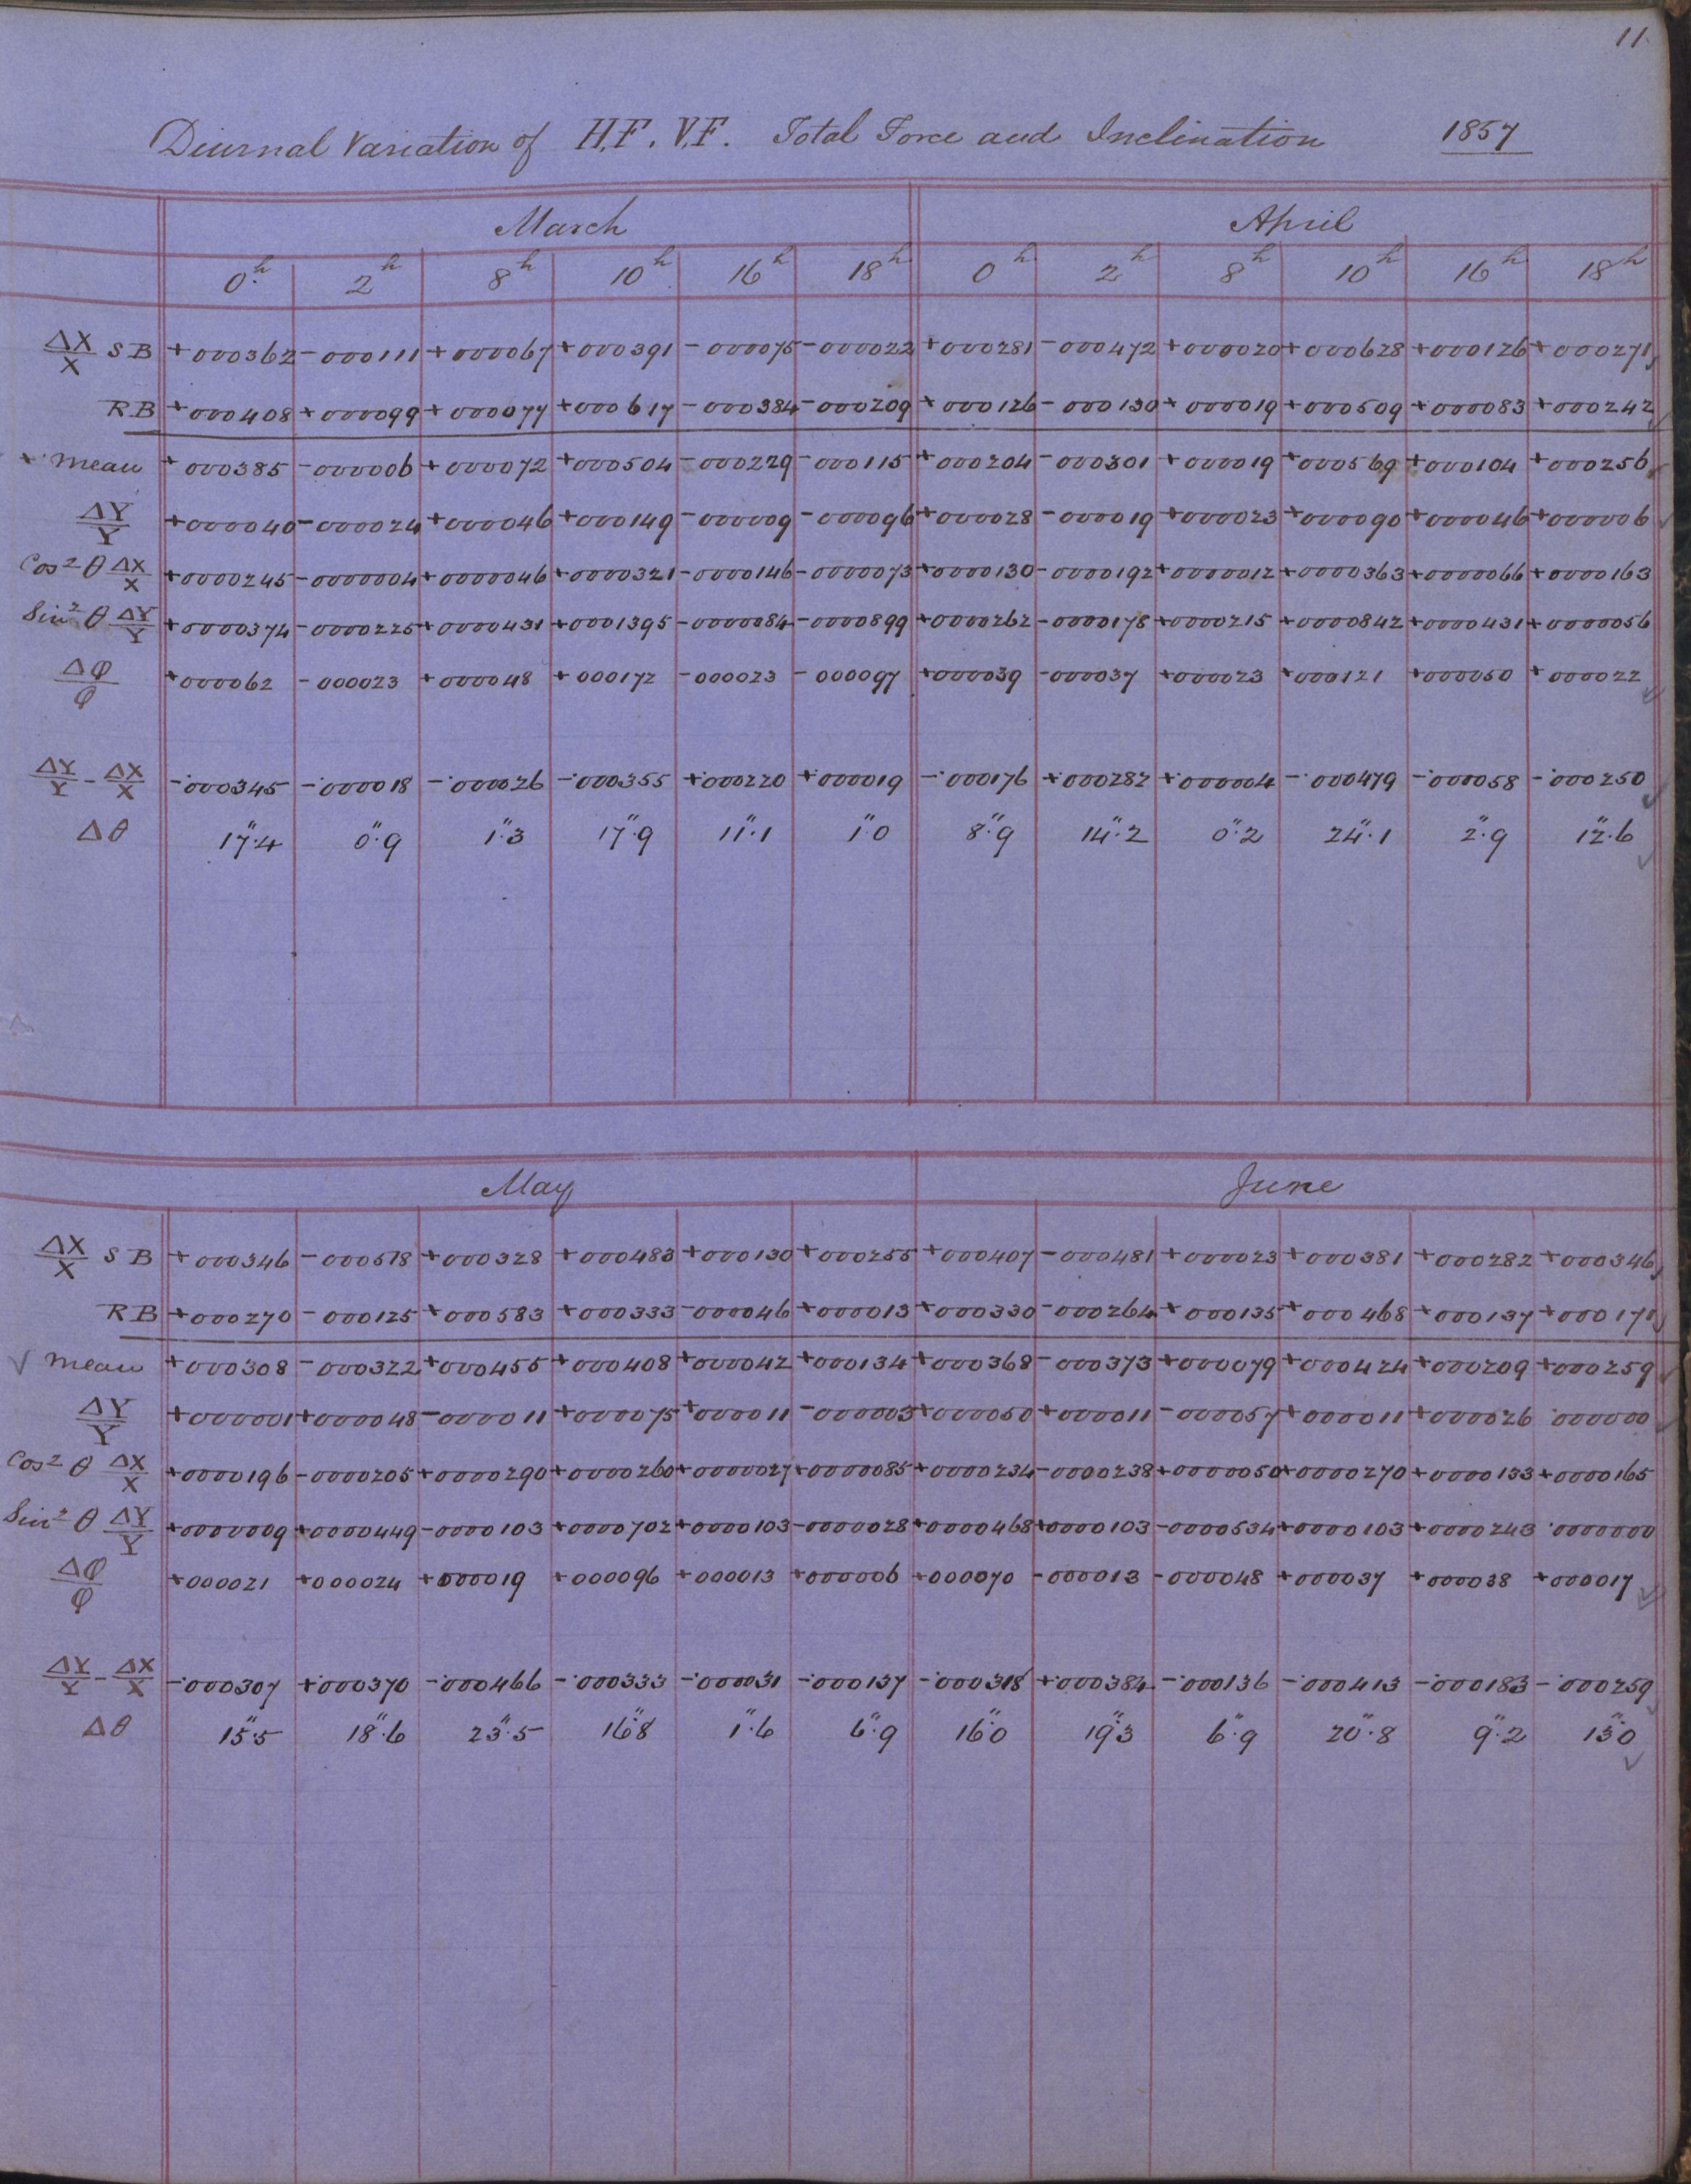 11.
Diurnal Variation of H.F. V.F. Total Force and Inclination 1857
March April
0h 2h 8h 10h 16h 18h 0h 2h 8h 10h 16h 18h
ΔX/X SB +000362 -000111 +000067 +000391 -000075 -000022 +000281 -000472 +000020 +000628 +000126 +000271
RB +000408 +000099 +000077 +000617 -000384 -000209 +000126 -000130 +000019 +000509 +000083 +000242
mean +000385 -000006 +000072 +000504 -000229 -000115 +000204 -000301 +000019 +000569 +000104 +000256
ΔY/Y +000040 -000024 +000046 +000149 -000009 -000096 +000028 -000019 +000023 +000090 +000046 +000006
Cos² θ ΔX/X +0000245 -0000004 +0000046 +0000321 -0000146 -0000073 +0000130 -0000192 +0000012 +0000363 +0000066 +0000163
Sin² θ ΔY/Y +0000374 -0000225 +0000431 +0001395 -0000084 -0000899 +0000262 -0000178 +0000215 +0000842 +0000431 +0000056
Δφ/φ +000062 -000023 +000048 +000172 -000023 -000097 +000039 -000037 +000023 +000121 +000050 +000022
ΔY/Y - ΔX/X -·000345 -·000018 -·000026 -·000355 +·000220 +·000019 -·000176 +·000282 +·000004 -·000479 -·000058 -·000250
Δθ 17″.4 0″.9 1″.3 17″.9 11″.1 1″.0 8″.9 14″.2 0″.2 24″.1 2″.9 12″.6
May June
ΔX/X SB +000346 -000518 +000328 +000483 +000130 +000255 +000407 -000481 +000023 +000381 +000282 +000346
RB +000270 -000125 +000583 +000333 -000046 +000013 +000330 -000264 +000135 +000468 +000137 +000171
mean +000308 -000322 +000455 +000408 +000042 +000134 +000368 -000373 +000079 +000424 +000209 +000259
ΔY/Y +000001 +000048 -000011 +000075 +000011 -000003 +000050 +000011 -000057 +000011 +000026 ·000000
Cos² θ ΔX/X +0000196 -0000205 +0000290 +0000260 +0000027 +0000085 +0000234 -0000238 +0000050 +0000270 +0000133 +0000165
Sin² θ ΔY/Y +0000009 +0000449 -0000103 +0000702 +0000103 -0000028 +0000468 +0000103 -0000534 +0000103 +0000243 ·0000000
Δφ/φ +000021 +000024 +000019 +000096 +000013 +000006 +000070 -000013 -000048 +000037 +000038 +000017
ΔY/Y - ΔX/X -·000307 +·000370 -·000466 -·000333 -·000031 -·000137 -·000318 +·000384 -·000136 -·000413 -·000183 -·000259
Δθ 15″.5 18″.6 23″.5 16″.8 1″.6 6″.9 16″.0 19″.3 6″.9 20″.8 9″.2 13″.0